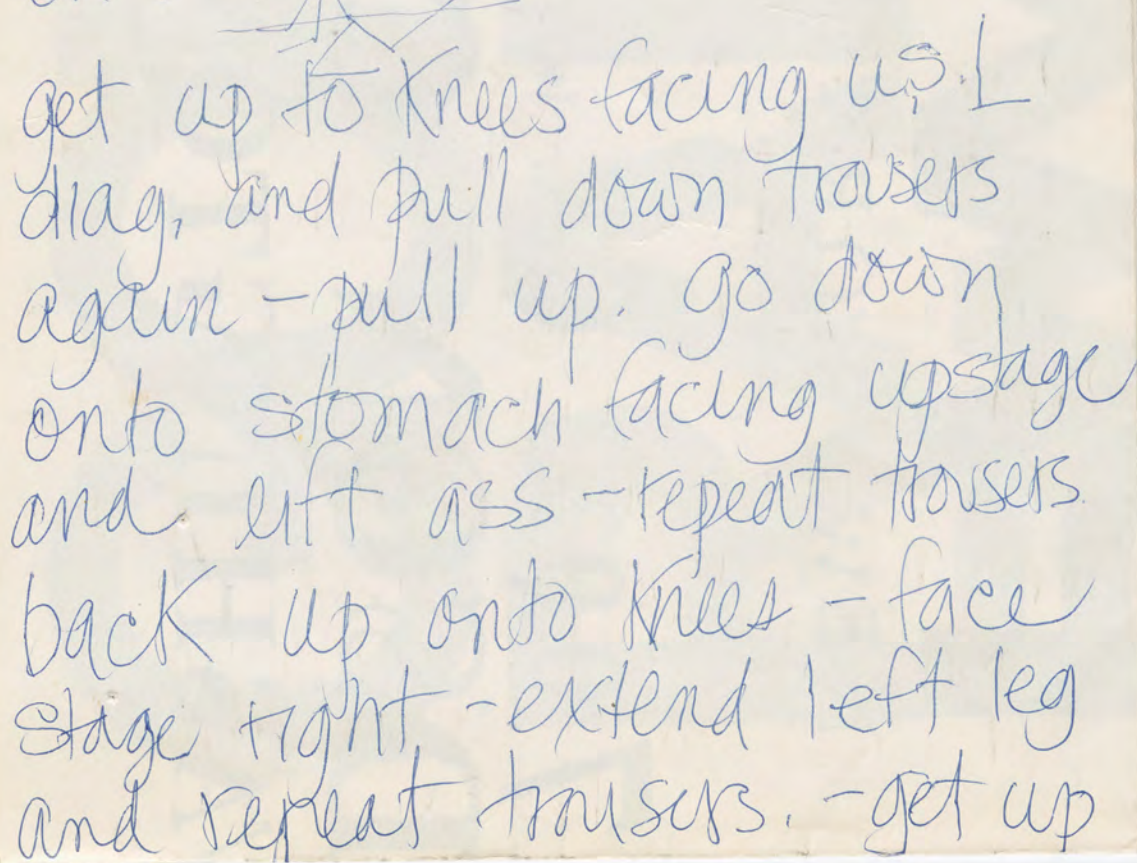 get up to knees facing u.s. L
diag, and pull down trousers
again - pull up. go down
onto stomach facing upstage
and lift ass - repeat trousers.
back up onto knees - face
stage right - extend left leg
and repeat trousers. - get up